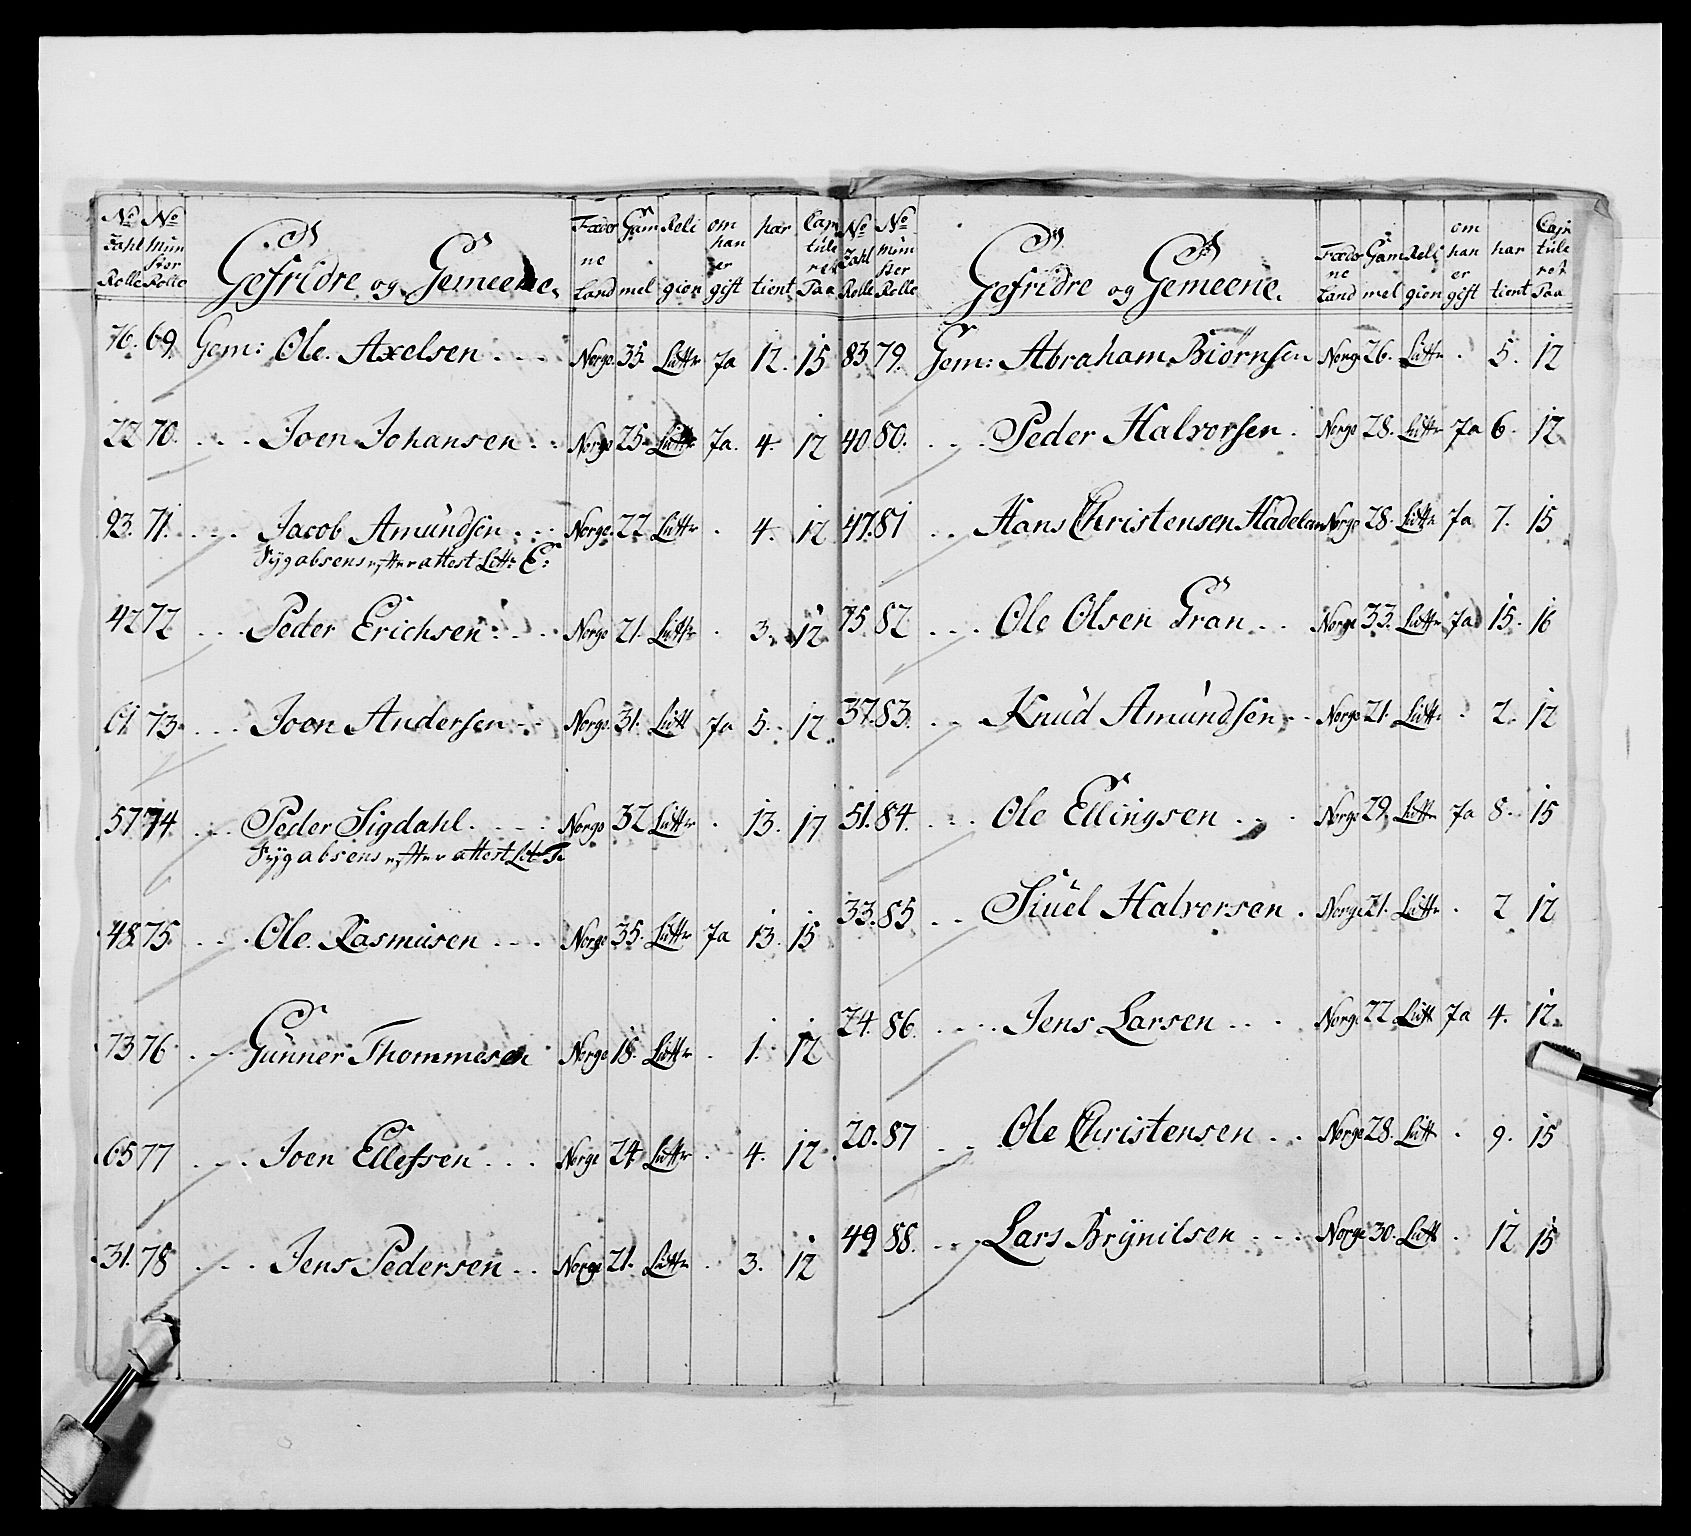 No Zahl Rolle | No Münster Rolle | Gefridre og Gemeene. | Fæderne Land | Gammel | Religion | om han er gift | har tient | Capituleret Paa
76. 69. Gem: Ole Axelsen . . . Norge. 35. Lutt Ja 12. 15
22 70. . . . Joen Johansen . . Norge 25. Lutt Ja. 4. 12
23. 71. . . . Jacob Amündsen . . . Norge. 22 Lutt . 4. 12
Sygabsens efter attest Litt: E:
42 72 . . . Peder Erichsen . . . Norge 21. Lutt . 3. 12
61. 73. . . . Joen Andersen . . Norge. 31. Lutt Ja 5. 12
57 74. . . . Peder Sigdahl . . . . Norge 32 Lutt . 13. 17
Sygabsens efter attest Lit F.
48. 75. . . . Ole Rasmüsen . . . Norge 35. Lutt Ja 13. 15
73 76 . . . Günner Thommesen Norge 18. Lutt . 1. 12
65 77 . . . Joen Ellefsen . . . Norge 24. Lutt . 4. 12
31. 78 . . . Jens Pedersen . . Norge 21. Lutt . 3. 12
No Zahl Rolle | No Münster Rolle | Gefridre og Gemeene. | Fæderne Land | Gammel | Religion | om han er gift | har tient | Capituleret Paa
83. 79. Gem: Abraham Biørnsen Norge 26. Lutt . 5. 12
40 80. . . . Peder Halvorsen . Norge 28. Lutt Ja 6. 12
47. 81 . . Hans Christensen Hadelan Norge 28. Lutt Ja 7. 15
75. 82 . . . Ole Olsen Gran . . Norge 33. Lutt Ja 15. 16
37. 83. . . Knüd Amündsen . . Norge 21. Lutt . 2. 12
51. 84. . . . Ole Ellingsen . . . Norge 29. Lutt Ja 8. 15
33. 85 . . Siüel Halvorsen . Norge 21. Lutt . 2 12
24. 86. . . . Jens Larsen . . . Norge 22 Lutt Ja 4. 12.
20. 87 . . Ole Christensen . . Norge 28. Lutt . 9. 15
49 88. . . . Lars Brÿnilsen . . . Norge 30. Lutt . 12 15